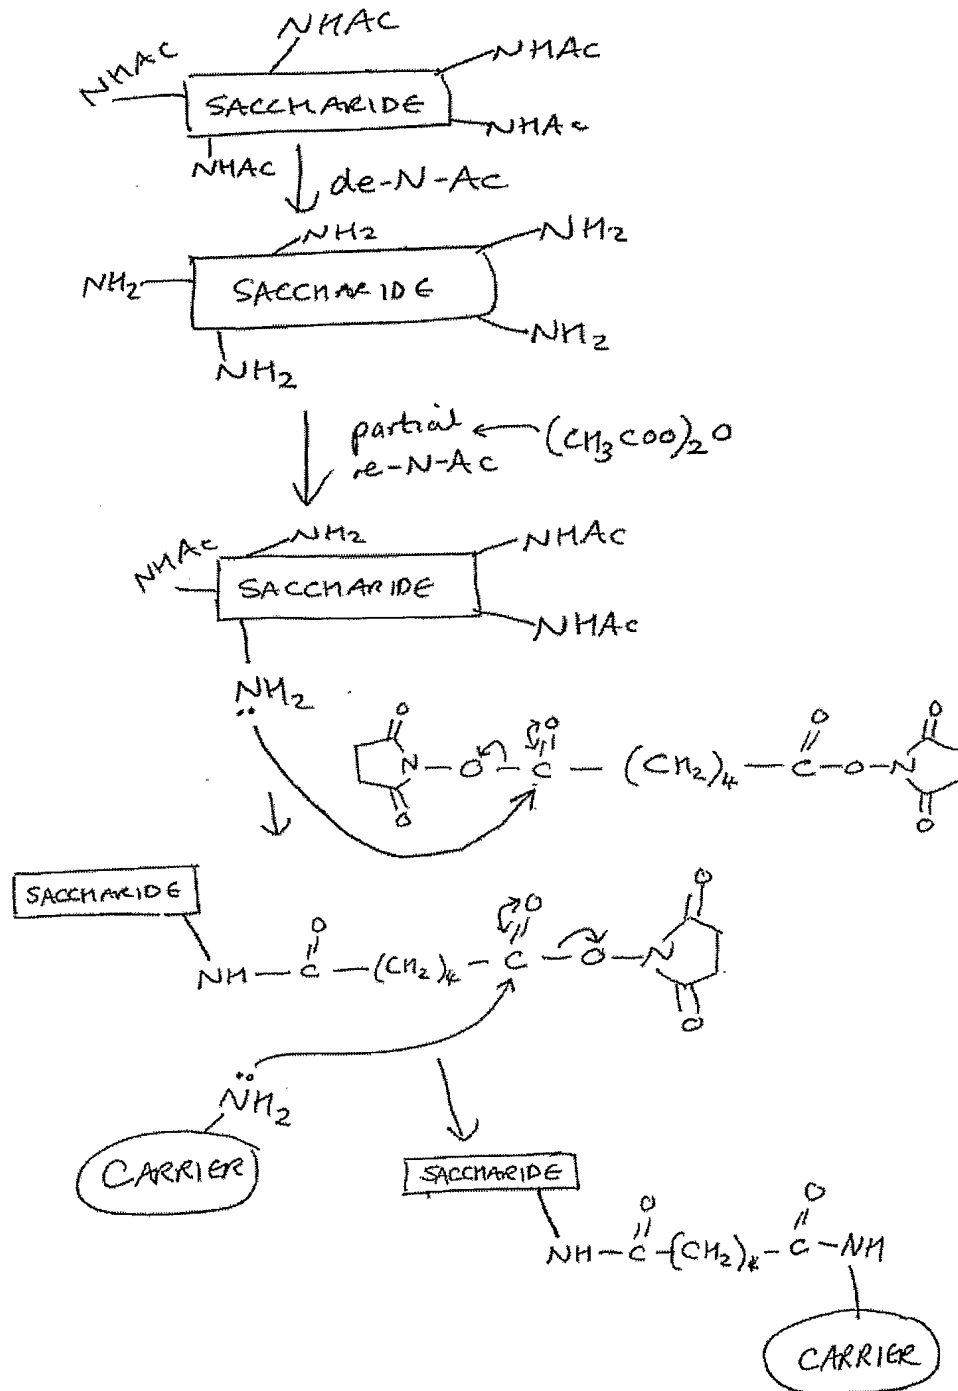 NHAC
NHAC NHAC
SACCHARIDE
NHAC NHAC
de-N-AC
NH2 NH2
NH2 SACCHARIDE
NH2 NH2
partial (CH3COO)2O
re-N-AC
NHAC NH2 NHAC
SACCHARIDE
NHAC
NH2
O O O O
N-O-C-(CH2)4-C-O-N
O O
SACCHARIDE
O O O
NH-C-(CH2)4-C-O-N
O
NH2
CARRIER
SACCHARIDE
O O
NH-C-(CH2)4-C-NH
CARRIER